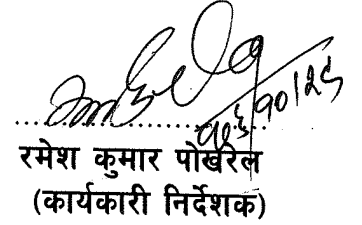 रमेश कुमार पोखरेल
(कार्यकारी निर्देशक)